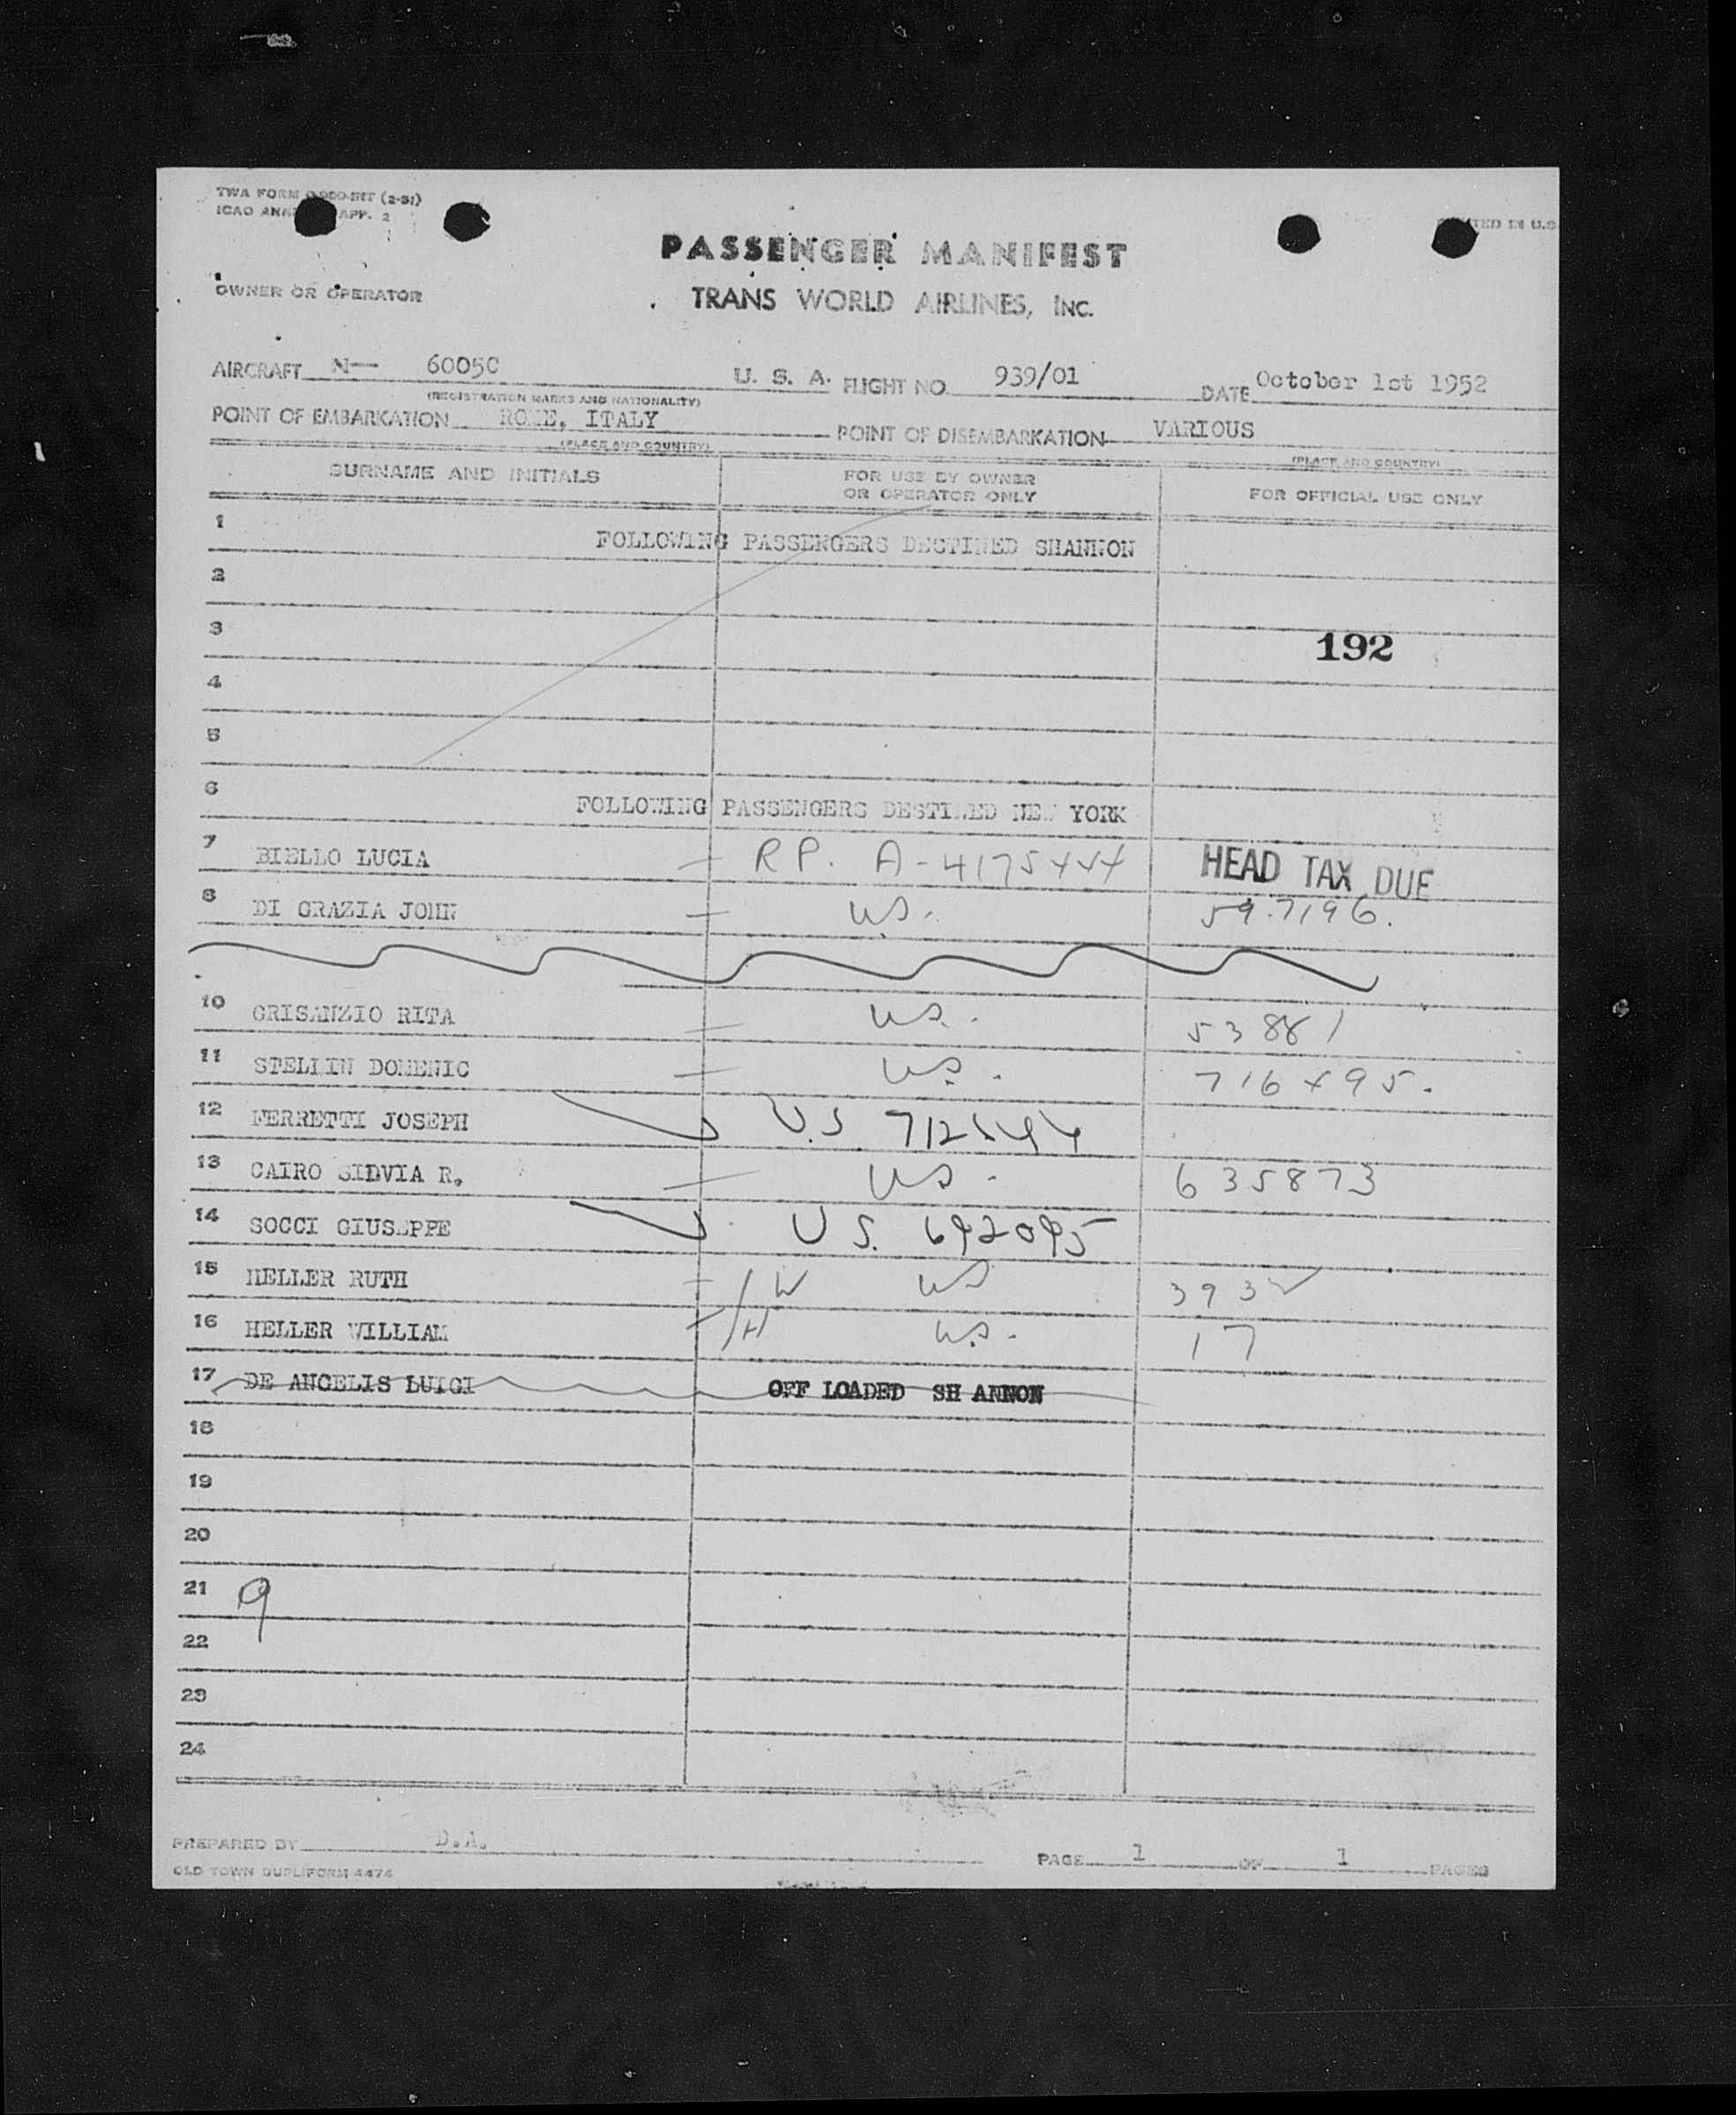 TWA FORM (2-51)
ICAO APP. 2
PASSENGER MANIFEST
OWNER OR OPERATOR
TRANS WORLD AIRLINES, INC.
AIRCRAFT N— 6005C U. S. A. FLIGHT NO. 939/01 DATE October 1st 1952
(REGISTRATION MARKS AND NATIONALITY)
POINT OF EMBARKATION ROME, ITALY POINT OF DISEMBARKATION VARIOUS
(PLACE AND COUNTRY) (PLACE AND COUNTRY)
SURNAME AND INITIALS FOR USE BY OWNER OR OPERATOR ONLY FOR OFFICIAL USE ONLY
1 FOLLOWING PASSENGERS DESTINED SHANNON
2
3 192
4
5
6 FOLLOWING PASSENGERS DESTINED NEW YORK
7 BIELLO LUCIA — RP. HEAD TAX DUE
8 DI GRAZIA JOHN — U.S. 59.7196.
10 GRISANZIO RITA — U.S. 53881
11 STELLIN DOMENIC — U.S.
12 FERRETTI JOSEPH U.S
13 CAIRO SILVIA R. — U.S. 635873
14 SOCCI GIUSEPPE U S. 692095
15 HELLER RUTH — W US
16 HELLER WILLIAM — H U.S. 17
17 DE ANGELIS LUIGI OFF LOADED SH ANNON
18
19
20
21 9
22
23
24
PREPARED BY D.A. PAGE 1 OF 1 PAGES
OLD TOWN DUPLIFORM 4474